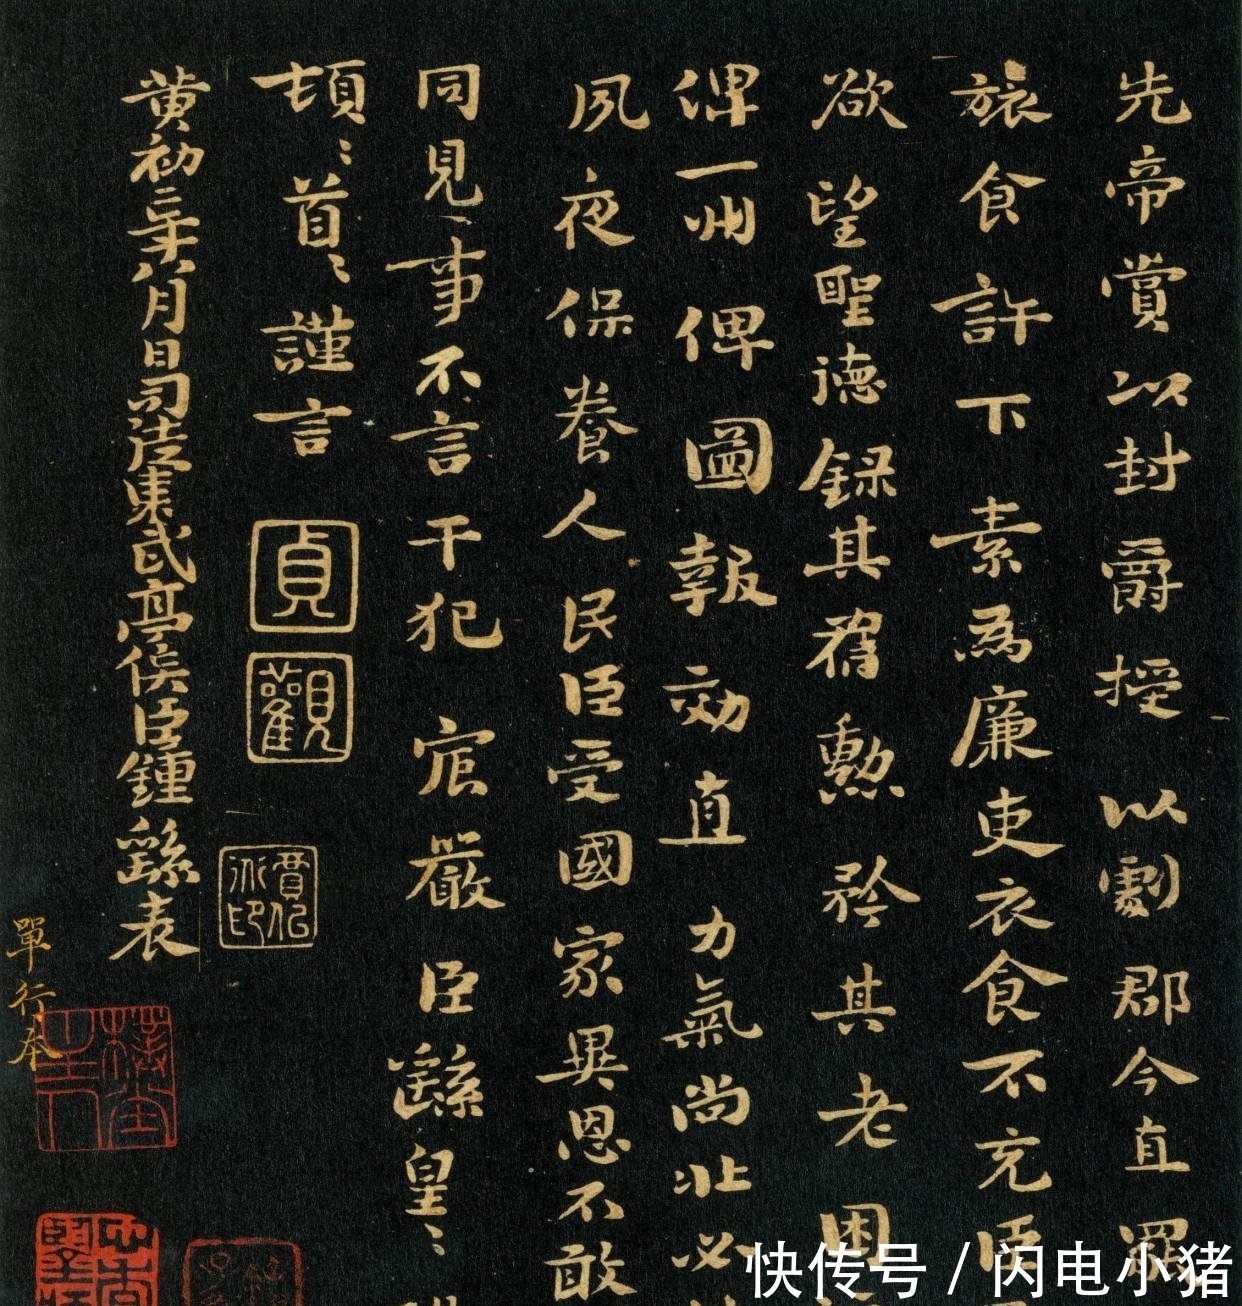 先帝賞以封爵授以劇郡今直罷
旅食許下素為廉吏衣食不充臣
欲望聖德錄其舊勳矜其老困
俾一州俾圖報効直力氣尚壯必
夙夜保養人民臣受國家異恩不敢
同見事不言干犯宸嚴臣繇皇〻
頓〻首〻謹言
貞觀
黃初二年八月日司徒東武亭侯臣鍾繇表
單行本
快传号／闪电小猪